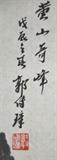 黄山奇峰
戊辰之春
郭传璋